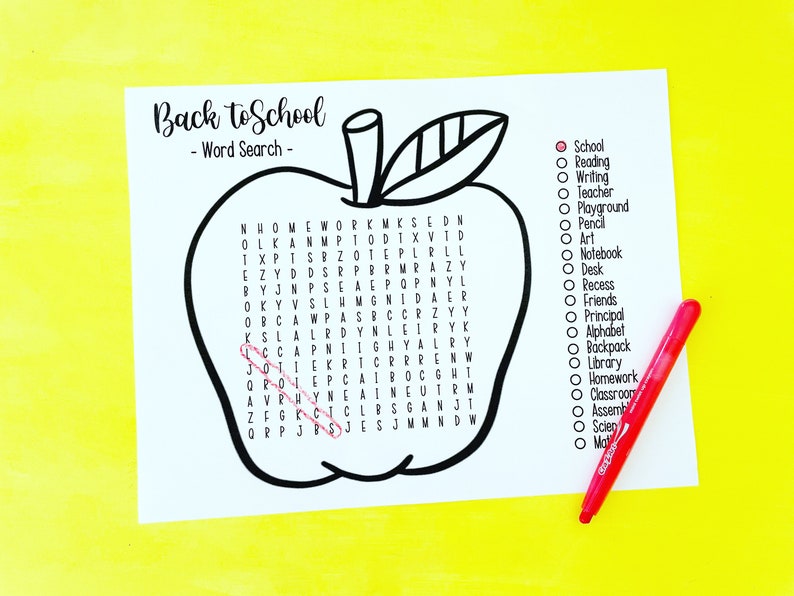 Back to School
- Word Search -
N H O M E W O R K M K S E D N
O L K A N M P T O D T X V T D
T X P T S B Z O T E P L R L L
E Z Y D D S R P B R M R A Z Y
B Y J N P S E A E P Q P N Y L
O K Y V S L H M G N I D A E R
O B C A W P A S B C C R Z Y Y
K S L A L R D Y N L E I R Y K
L C C A P N I I G H Y A L R Y
J O T I E K R T C R R R E N W
Q R O L E P C A I B O C G H T
A V R H Y N E A I N E U T R M
Z F G K C T C L B S G A N J T
Q R P J B S J E S J M M N D W
School
Reading
Writing
Teacher
Playground
Pencil
Art
Notebook
Desk
Recess
Friends
Principal
Alphabet
Backpack
Library
Homework
Classroom
Assembl
Scien
Mat